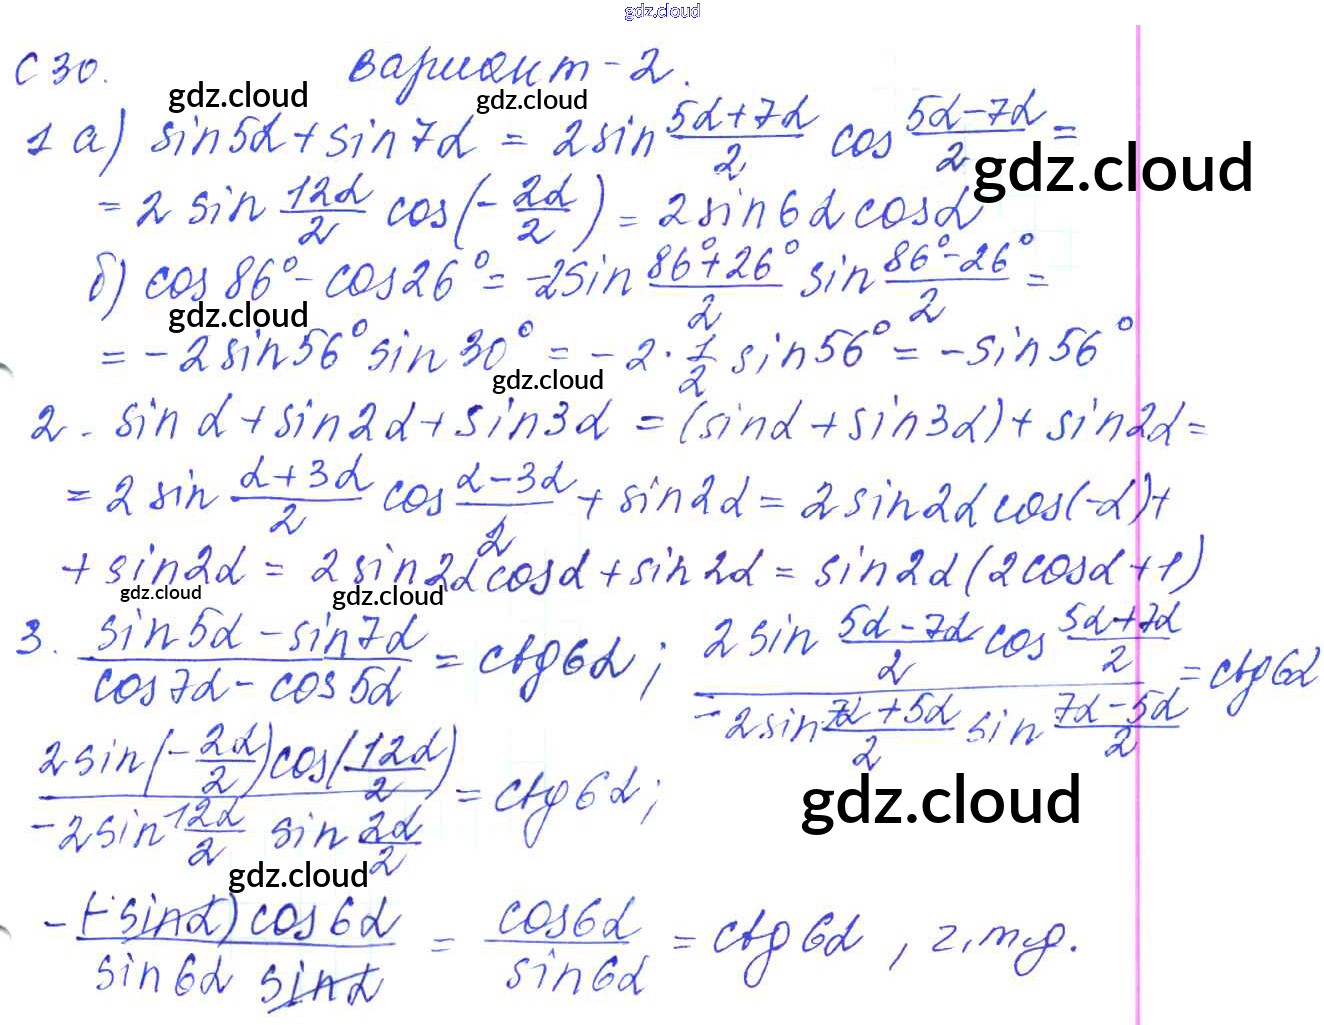 gdz.cloud
С 30. Вариант - 2.
gdz.cloud gdz.cloud
1 а) sin5α + sin7α = 2 sin (5α+7α)/2 cos (5α−7α)/2 =
gdz.cloud
= 2 sin 12α/2 cos(−2α/2) = 2 sin6α cosα
б) cos 86° − cos 26° = −2 sin (86°+26°)/2 sin (86°−26°)/2 =
gdz.cloud
= −2 sin56° sin 30° = −2 · 1/2 sin56° = −sin56°
gdz.cloud
2. sin α + sin2α + sin3α = (sinα + sin3α) + sin2α =
= 2 sin (α+3α)/2 cos (α−3α)/2 + sin2α = 2 sin2α cos(−α) +
+ sin2α = 2 sin2α cosα + sin2α = sin2α (2cosα + 1)
gdz.cloud gdz.cloud
3. (sin5α − sin7α)/(cos7α − cos5α) = ctg6α; (2 sin (5α−7α)/2 cos (5α+7α)/2)/(−2 sin (7α+5α)/2 sin (7α−5α)/2) = ctg6α
(2 sin(−2α/2) cos(12α/2))/(−2 sin 12α/2 sin 2α/2) = ctg6α;
gdz.cloud
gdz.cloud
−((−sinα) cos6α)/(sin6α sinα) = cos6α/sin6α = ctg6α, г.т.д.